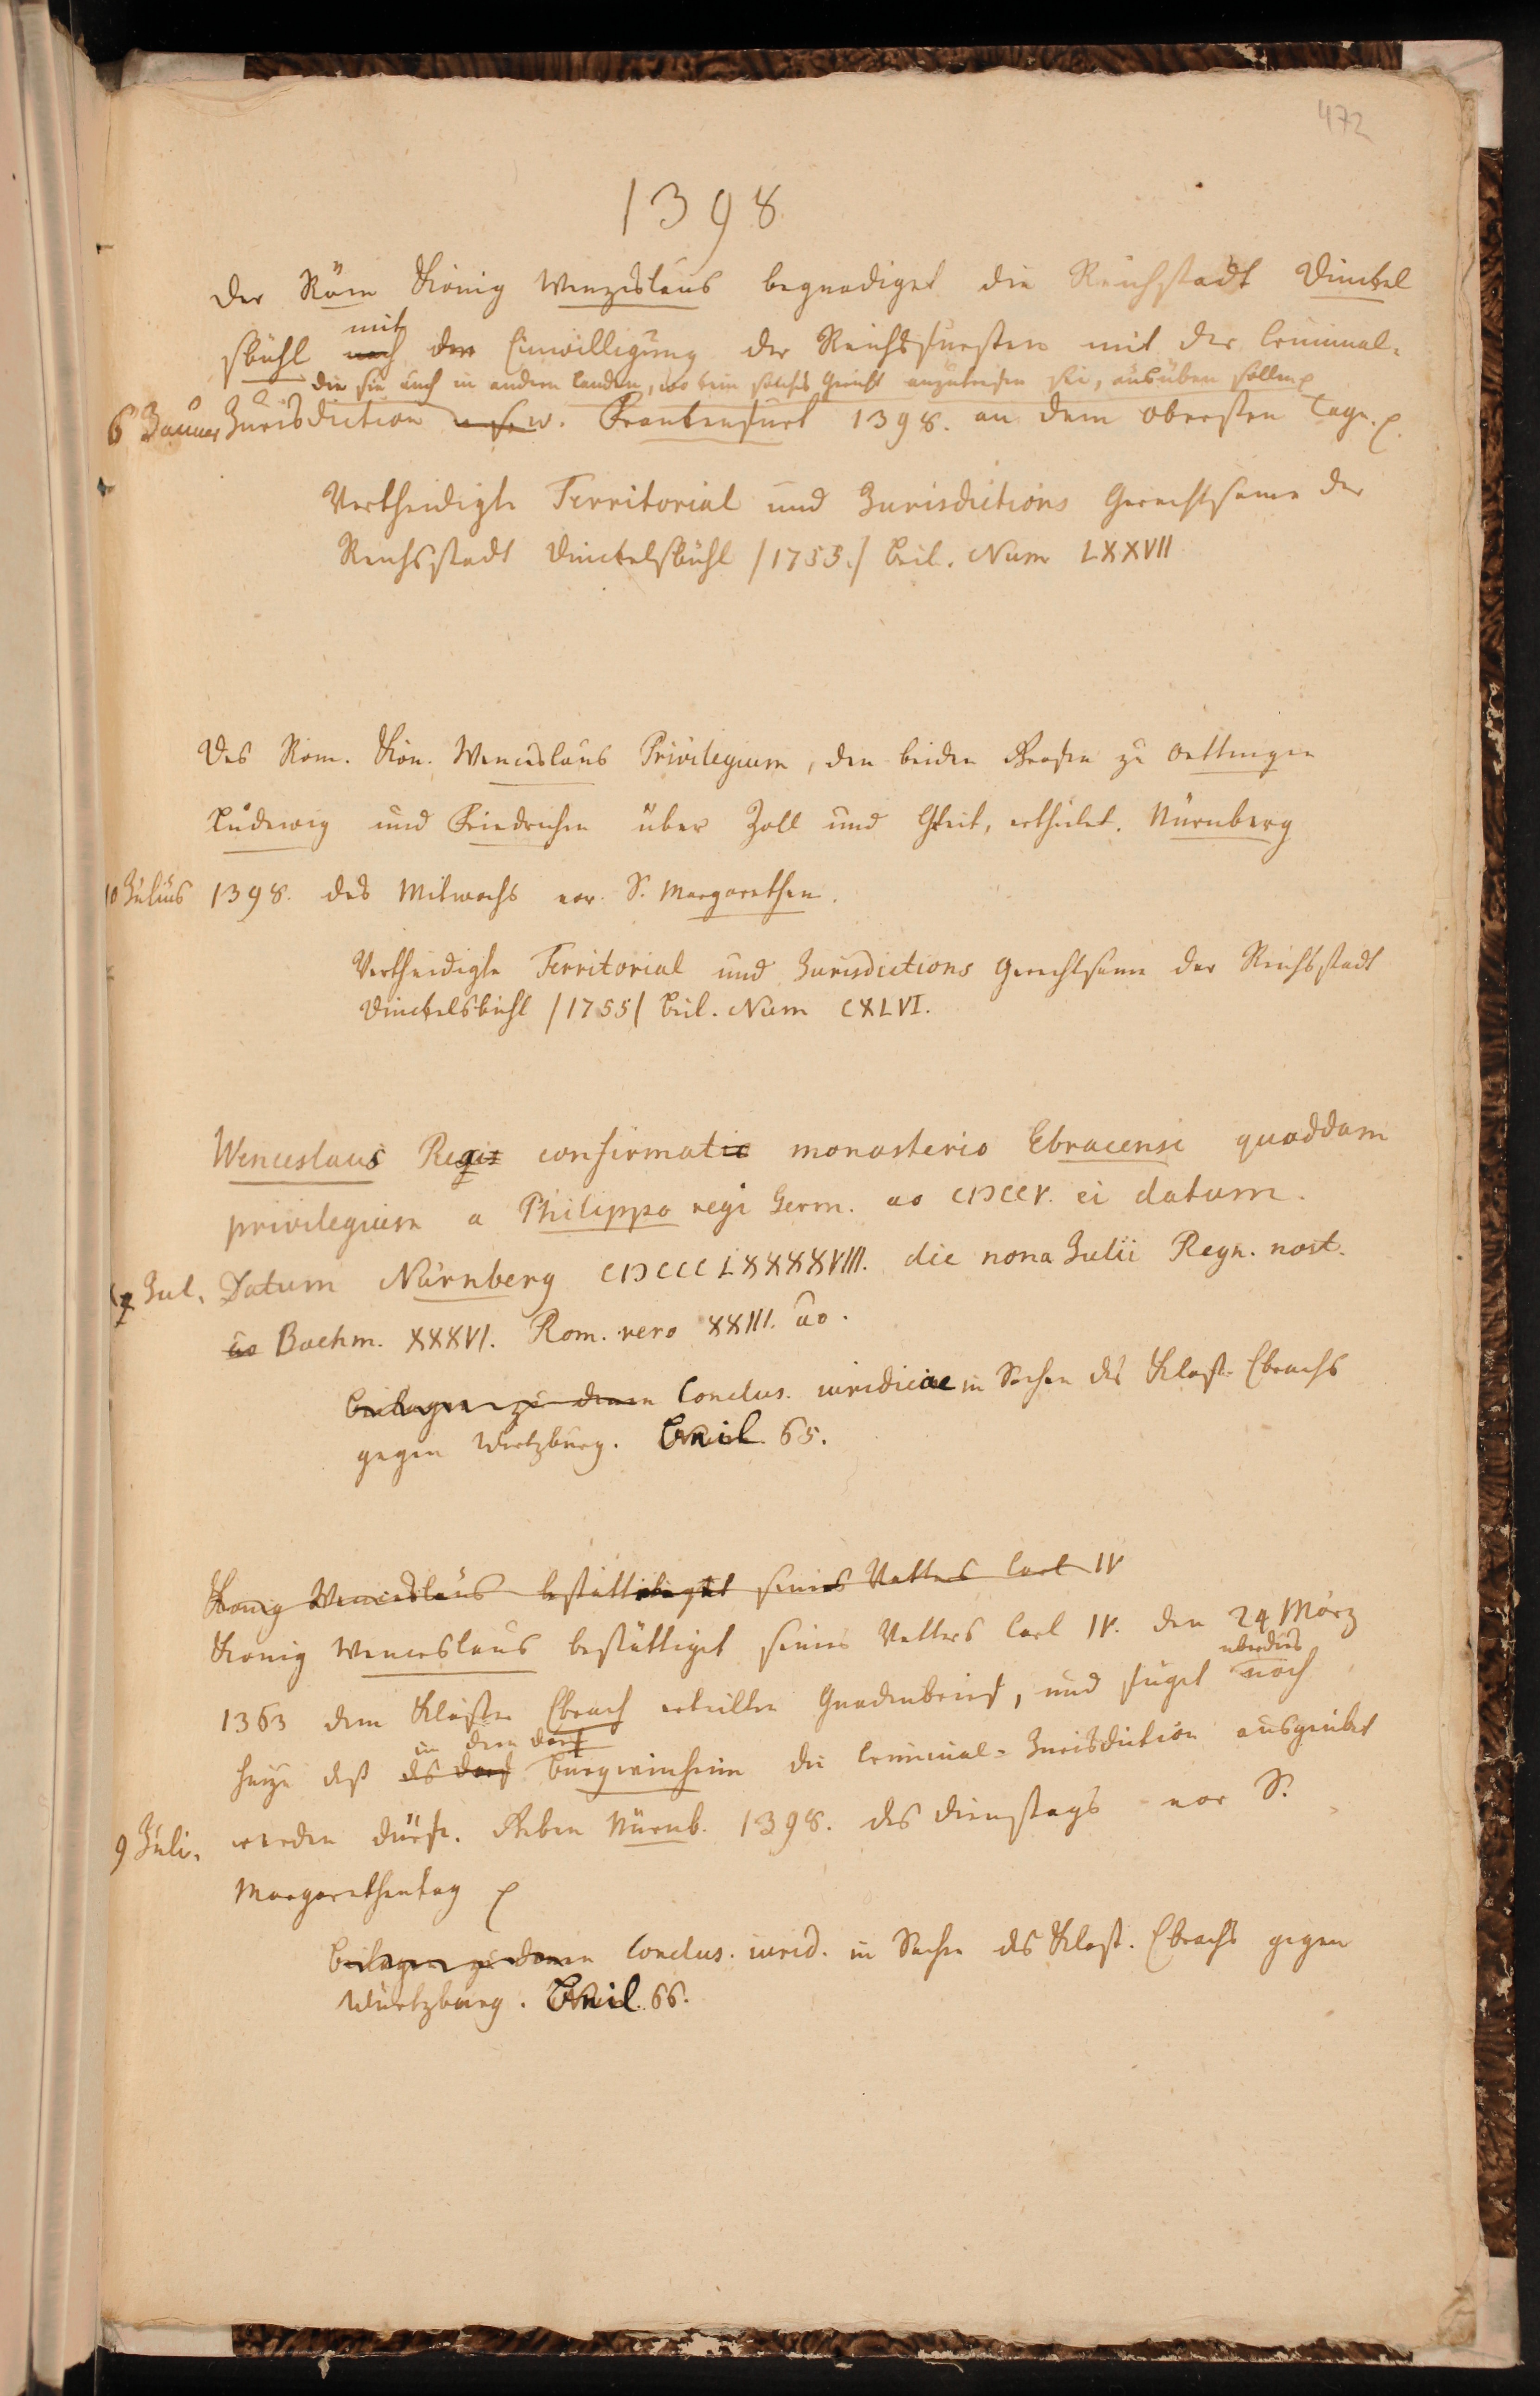 472
1398
Der Röm König Wenzeslaus begnadiget die Reichstadt Dinckel
mit
sbühl nach der Einwilligung der Reichsfursten mit der Criminal-
die sie auch in andern Landen, wo kein solches Gericht anzutreffen sei, ausüben sollen
6 Januar Jurisdiction u.s.w. Franckenfurt 1398. an dem obersten Tage.
Vertheidigte Territorial und Jurisdictions Gerechtsame der
Reichsstadt Dinckelsbühl /1755./ Beil. Num LXXVII
Des Rom. Kön. Wenceslaus Privilegium, den beiden Grafen zu Oettingen
Ludewig und Friedrichen über Zoll und Gleit, ertheilet. Nürnberg
10 Julius 1398. des Mitwochs vor S. Margarethen.
Vertheidigte Territorial und Jurisdictions Gerechtsame der Reichsstadt
Dinckelsbühl /1755/ Beil. Num CXLVI.
Wenceslaus Regis confirmatio monasterio Ebracensi quoddam
privilegium a Philippo rege Germ. ao CIƆCCV. ei datum.
9 Jul. Datum Nürnberg CIƆCCCLXXXXVIII. die nona Julii Regn. nost.
ao Boehm. XXXVI. Rom. vero XXIII. ao.
Beilagen zu denen Conclus. iuridicae in Sachen des Klost. Ebrachs
gegen Wirtzburg. Beil. 65.
König Wenceslaus bestättiget seines Vatters Carl IV
König Wenceslaus bestättiget seines Vatters Carl IV. den 24 März
uberdies
1363 dem Kloster Ebrach erteilten Gnadenbrief, und füget noch
in dem Dorf
hinzu daß das Dorf Burgwinheim die Criminal-Jurisdiction ausgeübet
9 Juli. werden dürfe. Geben Nürnb. 1398. des Dienstags vor S.
Margarethentag
Beilagen zu denen Conclus. iurid. in Sachen des Klost. Ebrachs gegen
Würtzburg. Beil. 66.